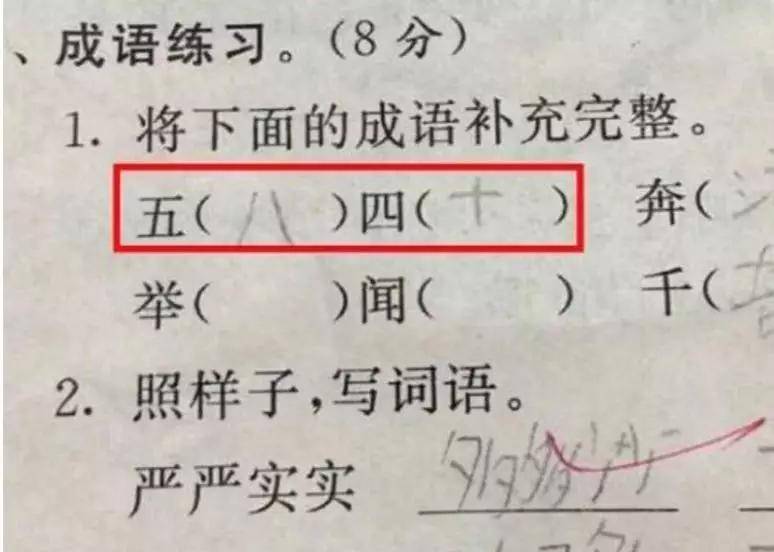 、成语练习。(8分)
1. 将下面的成语补充完整。
五(八)四(十) 奔(
举( )闻( ) 千(
2. 照样子,写词语。
严严实实